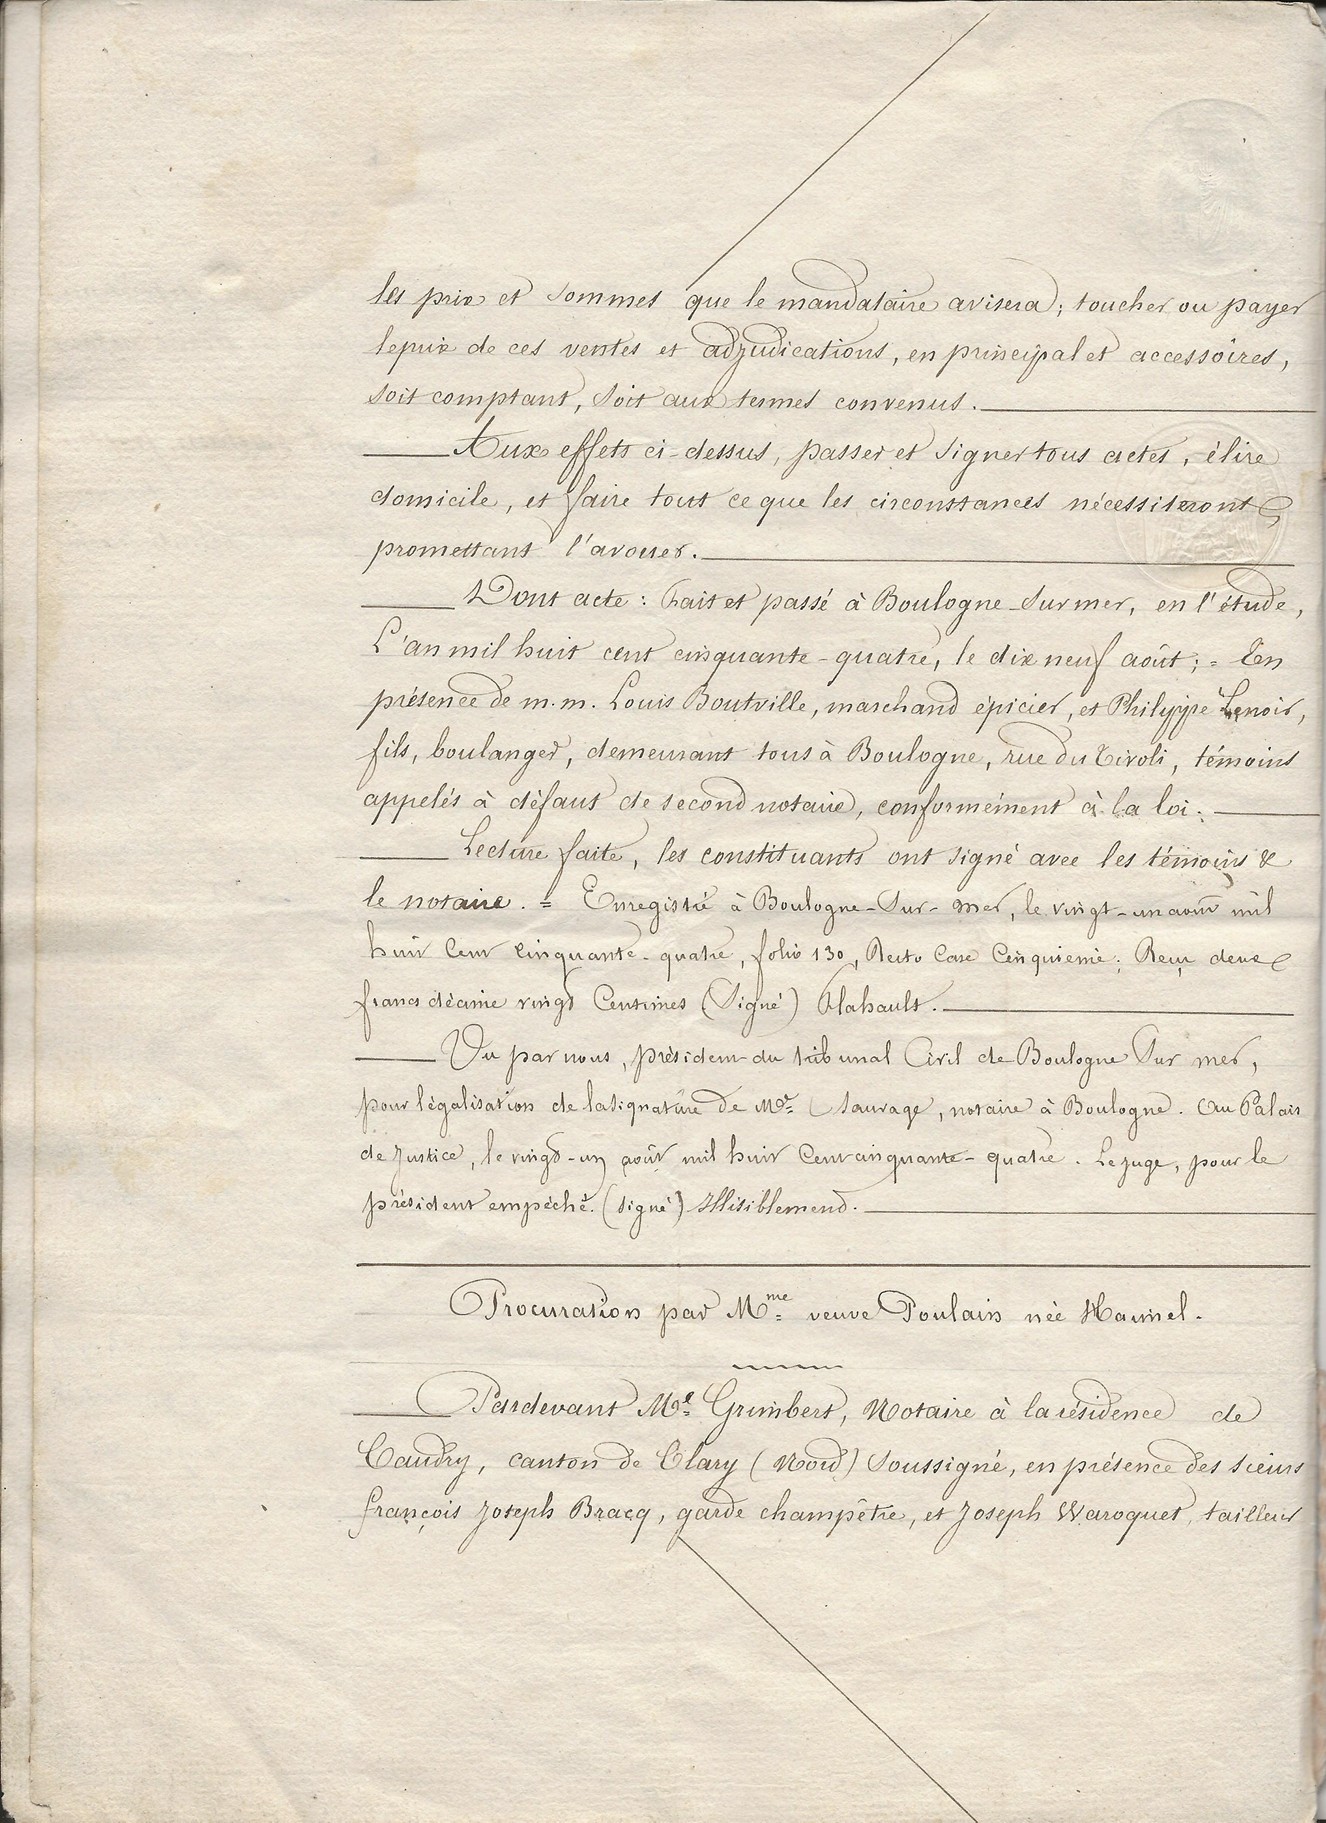 les prix et sommes que le mandataire avisera ; toucher ou payer
le prix de ces ventes et adjudications, en principal et accessoires,
soit comptant, soit aux termes convenus.
Aux effets ci-dessus, passer et signer tous actes, élire
domicile, et faire tout ce que les circonstances nécessiteront,
promettant l'avouer.
Dont acte : Fait et passé à Boulogne-sur mer, en l'étude,
L'an mil huit cent cinquante-quatre, le dix neuf août ; = En
présence de m.m. Louis Boutville, marchand épicier, et Philippe Lenoir,
fils, boulanger, demeurant tous à Boulogne, rue du Tivoli, témoins
appelés à défaut de second notaire, conformément à la loi.
Lecture faite, les constituants ont signé avec les témoins &
le notaire. = Enregistré à Boulogne-Sur-mer, le vingt-un août mil
huit Cent Cinquante-quatre, folio 130, Recto Case Cinquieme ; Reçu deux
francs décime vingt Centimes (Signé) Flahault.
Vu par nous, président du tribunal Civil de Boulogne Sur mer,
pour légalisation de la signature de Mr. Sauvage, notaire à Boulogne. Au Palais
de Justice, le vingt-un août mil huit Cent cinquante-quatre. Le juge, pour le
président empéché. (signé) Illisiblement.
Procuration par Mme veuve Poulain née Hamel.
Pardevant Me. Grimbert, Notaire à la résidence de
Caudry, canton de Clary (Nord) Soussigné, en présence des sieurs
François Joseph Bracq, garde champêtre, et Joseph Waroquet, tailleur